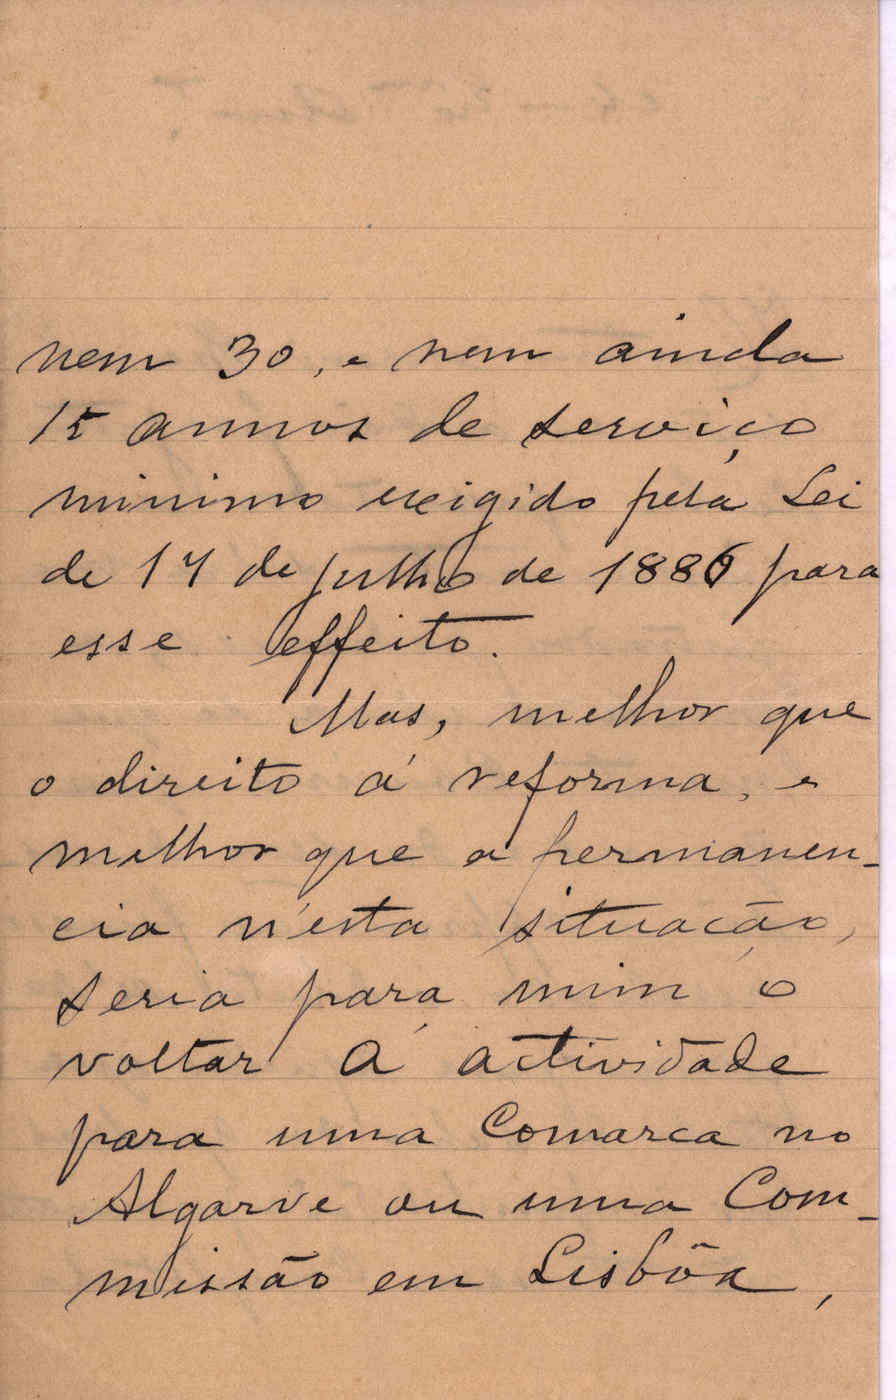 nem 30, e nem ainda
15 annos de serviço
minimo exigido pela Lei
de 17 de julho de 1886 para
esse effeito.
Mas, melhor que
o direito á reforma, e
melhor que a permanen-
cia n'esta situação,
seria para mim o
voltar á actividade
para uma Comarca no
Algarve ou uma Com-
missão em Lisbôa,